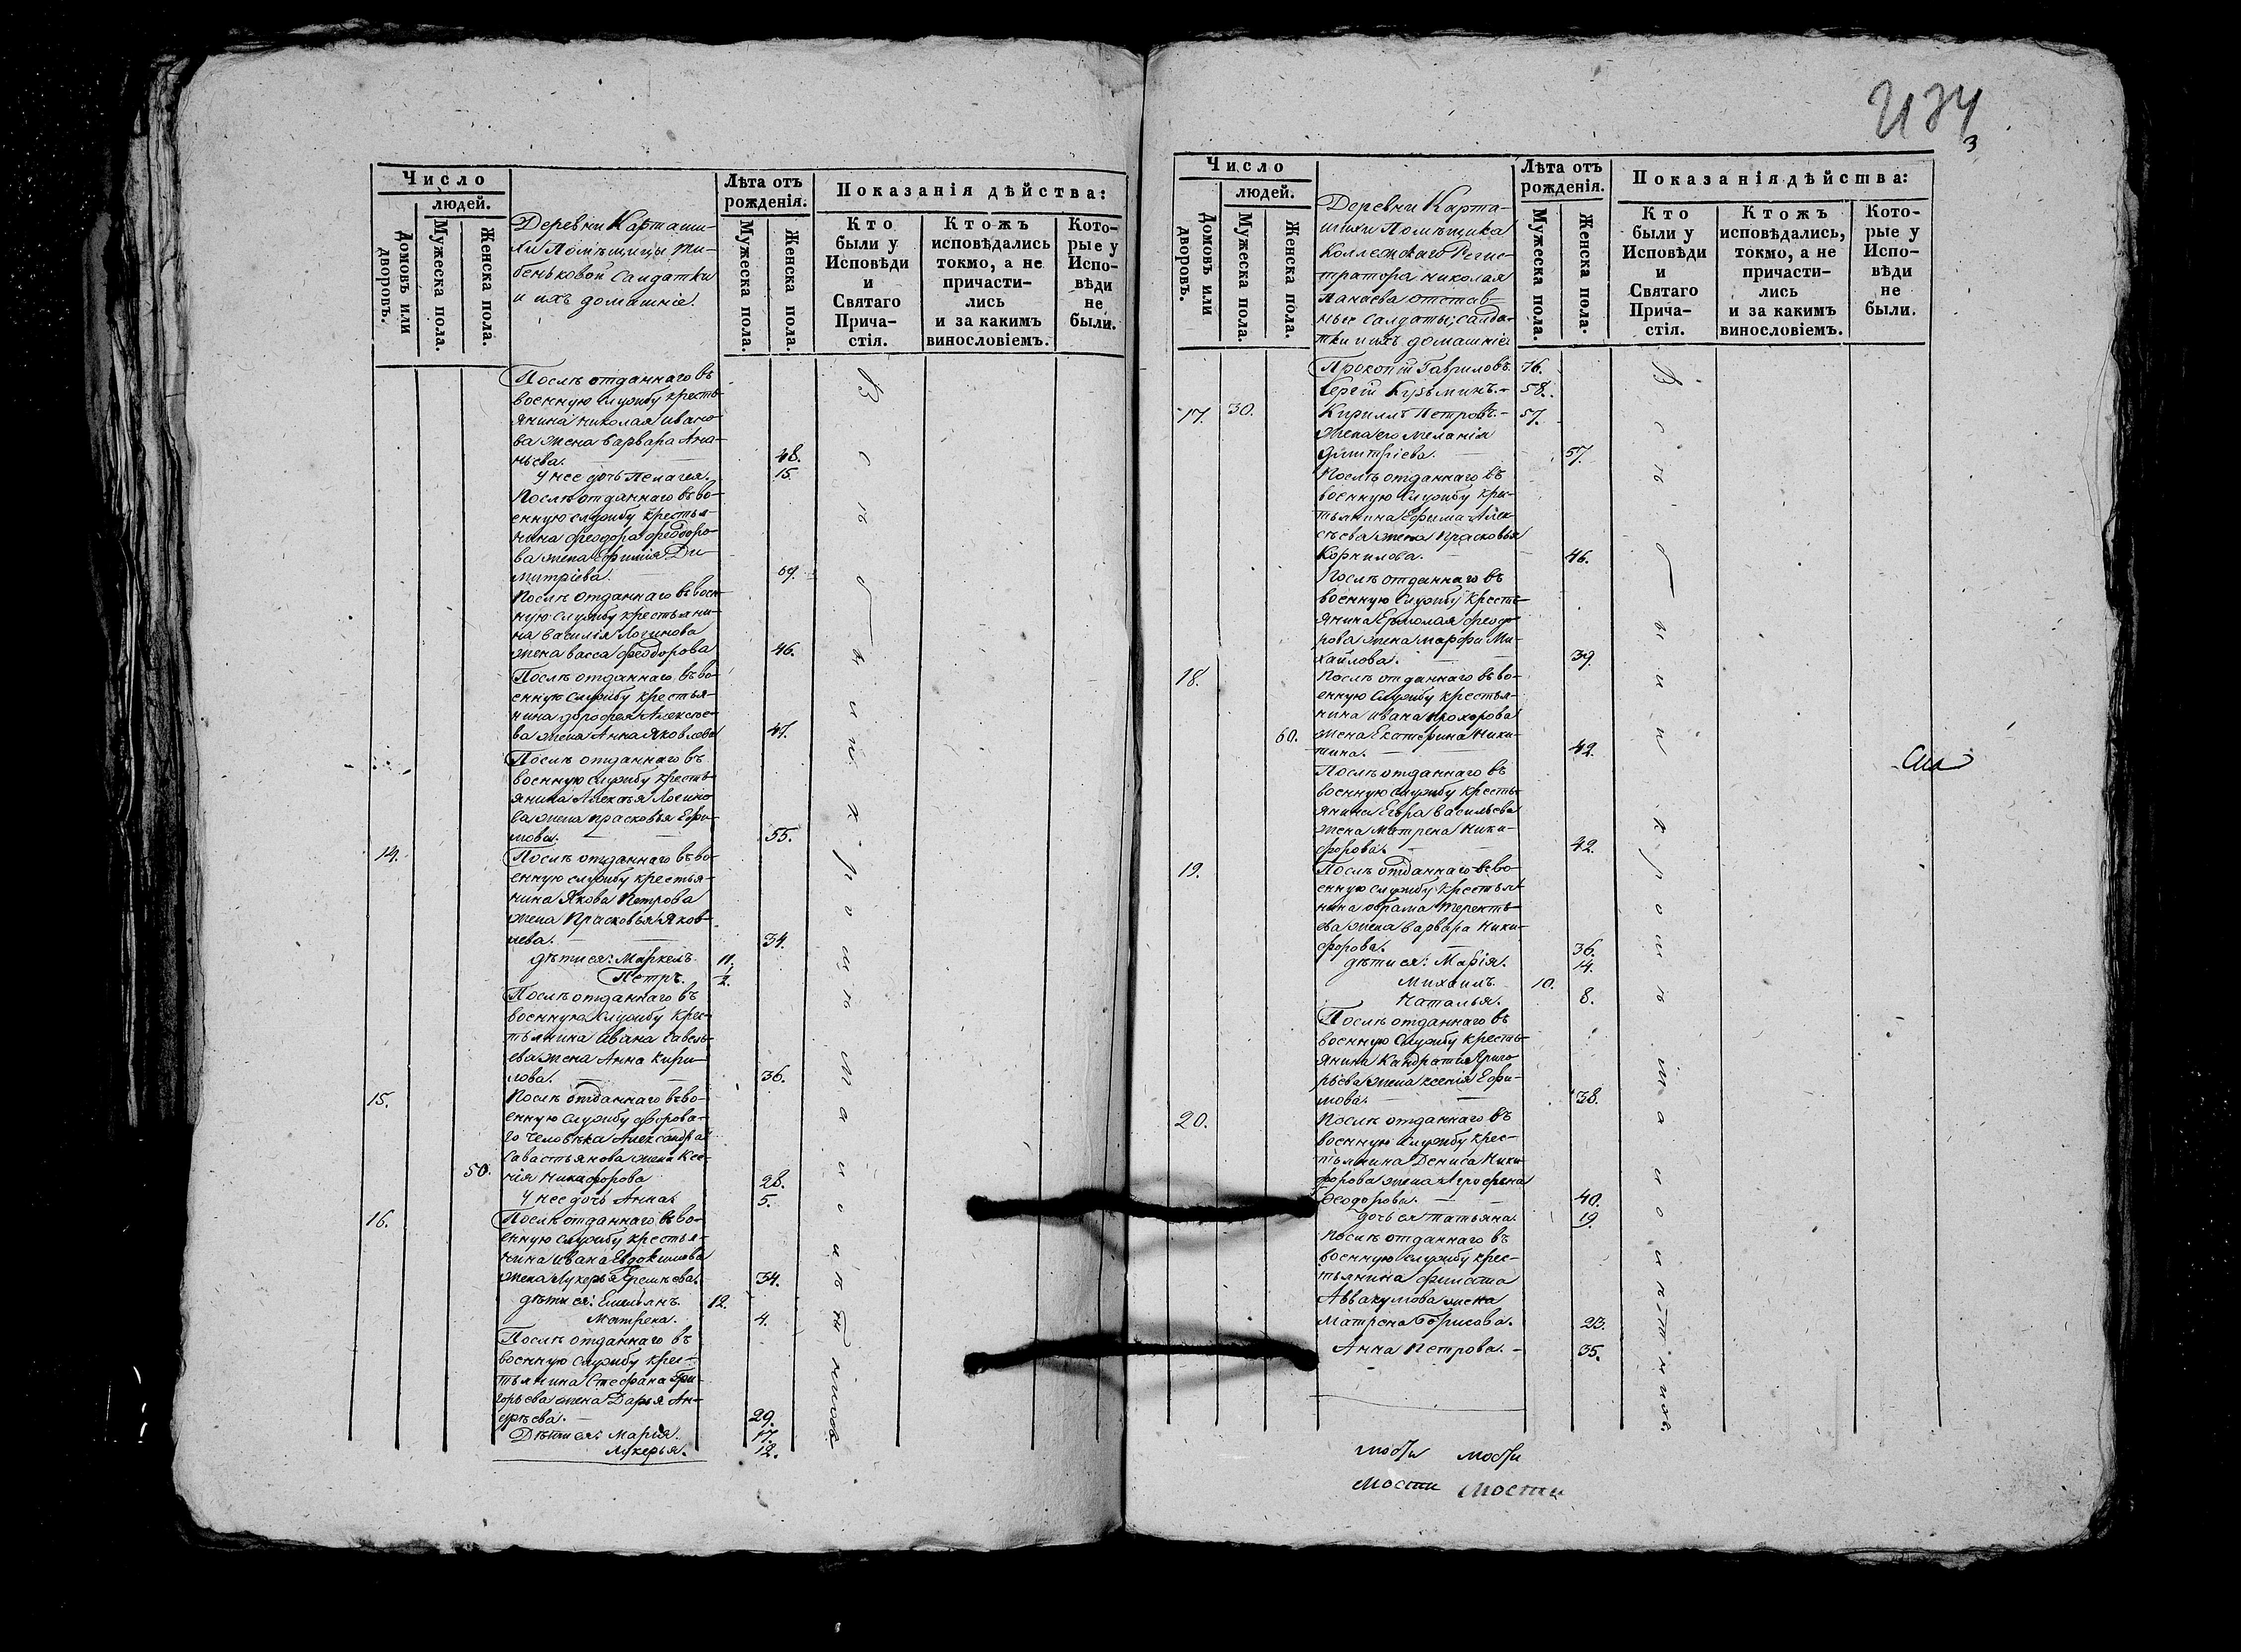 Число
людей.
Домовъ или дворовъ.
Мужеска пола.
Женска пола.
Деревни Карташи-
хи Помѣщицы Ти-
беньковой Салдатки
и ихъ домашніе.
Лѣта отъ
рожденія.
Мужеска пола.
Женска пола.
Показанія дѣйства:
Кто
были у
Исповѣди
и
Святаго
Прича-
стія.
Ктожъ
исповѣдались
токмо, а не
причасти-
лись
и за какимъ
винословіемъ.
Кото-
рые у
Испо-
вѣди
не
были.
Послѣ отданнаго въ
военную службу кресть-
янина Николая Ивано-
ва жена Варвара Ана-
ньева. 48.
У нее дочь Пелагея. 15.
Послѣ отданнаго въ во-
енную службу крестья-
нина Феодора Феодоро-
ва жена Ефимія Ди-
митріева.
Послѣ отданнаго въ воен-
ную службу крестьяни-
на Василія Логинова
жена Васса Феодорова 46.
Послѣ отданнаго въ во-
енную службу крестья-
нина Дорофея Алексѣе-
ва жена Анна Яковлева 47.
Послѣ отданнаго въ
военную службу кресть-
янина Алексѣя Логино-
ва жена Прасковья Ефи-
мова. 55.
14. Послѣ отданнаго въ во-
енную службу крестья-
нина Якова Петрова
жена Прасковья Яков-
лева. 34.
дѣти ея: Маркелъ 11.
Петръ. 2.
Послѣ отданнаго въ
военную службу крес-
тьянина Ивана Савель-
ева жена Анна Кири-
лова. 36.
15. Послѣ отданнаго въ во-
енную службу дворова-
го человѣка Александра
Савастьянова жена Ксе-
50. нія Никифорова 28.
У нее дочь Анна. 5.
16. Послѣ отданнаго въ во-
енную службу крестья-
нина Ивана Евдокимова
жена Лукерья Еремѣева. 34.
дѣти ея: Емельянъ. 12.
Матрена. 4.
Послѣ отданнаго въ
военную службу крес-
тьянина Стефана Гри-
горьева жена Дарья Ан-
дрѣева. 29.
Дѣти ея: Марія. 17.
Лукерья. 12.
Всѣ были и къ
3
Число
людей.
Домовъ или дворовъ.
Мужеска пола.
Женска пола.
Деревни Карта-
шихи Помѣщика
Коллежскаго Регис-
тратора Николая
Панаева отстав-
ные салдаты, салда-
тки и ихъ домашніе
Лѣта отъ
рожденія.
Мужеска пола.
Женска пола.
Показанія дѣйства:
Кто
были у
Исповѣди
и
Святаго
Прича-
стія.
Ктожъ
исповѣдались,
токмо, а не
причасти-
лись
и за какимъ
винословіемъ.
Кото-
рые у
Испо-
вѣди
не
были.
Прокопій Гавриловъ. 76.
Сергій Кузьминъ. 58.
17. 30. Кириллъ Петровъ. 57.
жена его Меланія
Димитріева. 57.
Послѣ отданнаго въ
военную службу крес-
тьянина Ефима Алек-
сѣева жена Прасковья
Корнилова. 46.
Послѣ отданнаго въ
военную службу кресть-
янина Ермолая Феодо-
рова жена Марфа Ми-
хайлова. 39.
18. Послѣ отданнаго въ во-
енную службу крестья-
нина Ивана Прохорова
60. жена Екатерина Ники-
тина. 42.
Послѣ отданнаго въ
военную службу кресть-
янина Егора Васильева
жена Матрена Ники-
форова. 42.
19. Послѣ отданнаго въ во-
енную службу крестья-
нина Абрама Теренть-
ева жена Варвара Ники-
форова. 36.
дѣти ея: Марія. 14.
Михаилъ. 10.
Наталья. 8.
Послѣ отданнаго въ
военную службу кресть-
янина Кандратія Григо-
рьева жена Ксенія Ефи-
мова. 38.
20. Послѣ отданнаго въ
военную службу крес-
тьянина Дениса Ники-
форова жена Агрофена
Феодорова. 40.
дочь ея Татьяна. 19.
Послѣ отданнаго въ
военную службу крес-
тьянина Филата
Аввакумова жена
Матрена Борисова. 23.
Анна Петрова. 35.
Всѣ были и къ
мости мости